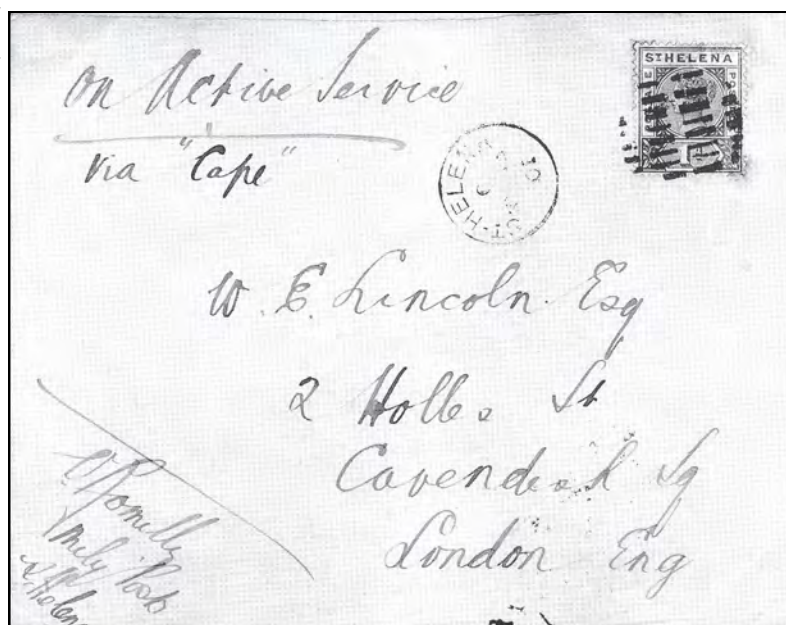 On Active Service
via "Cape"
ST HELENA
ST. HELENA
W. E. Lincoln. Esq
2 Holles St
Cavendish Sq
London Eng
Romilly
Mily Post
St. Helena